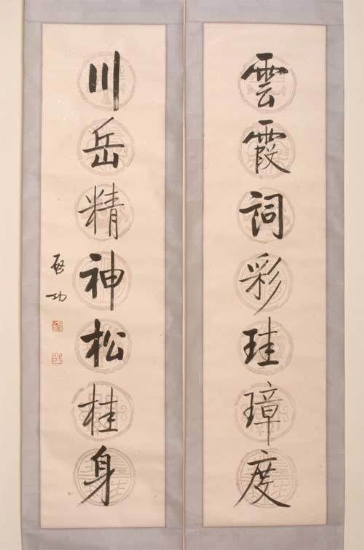 雲霞詞彩珪璋度
川岳精神松桂身
啟功